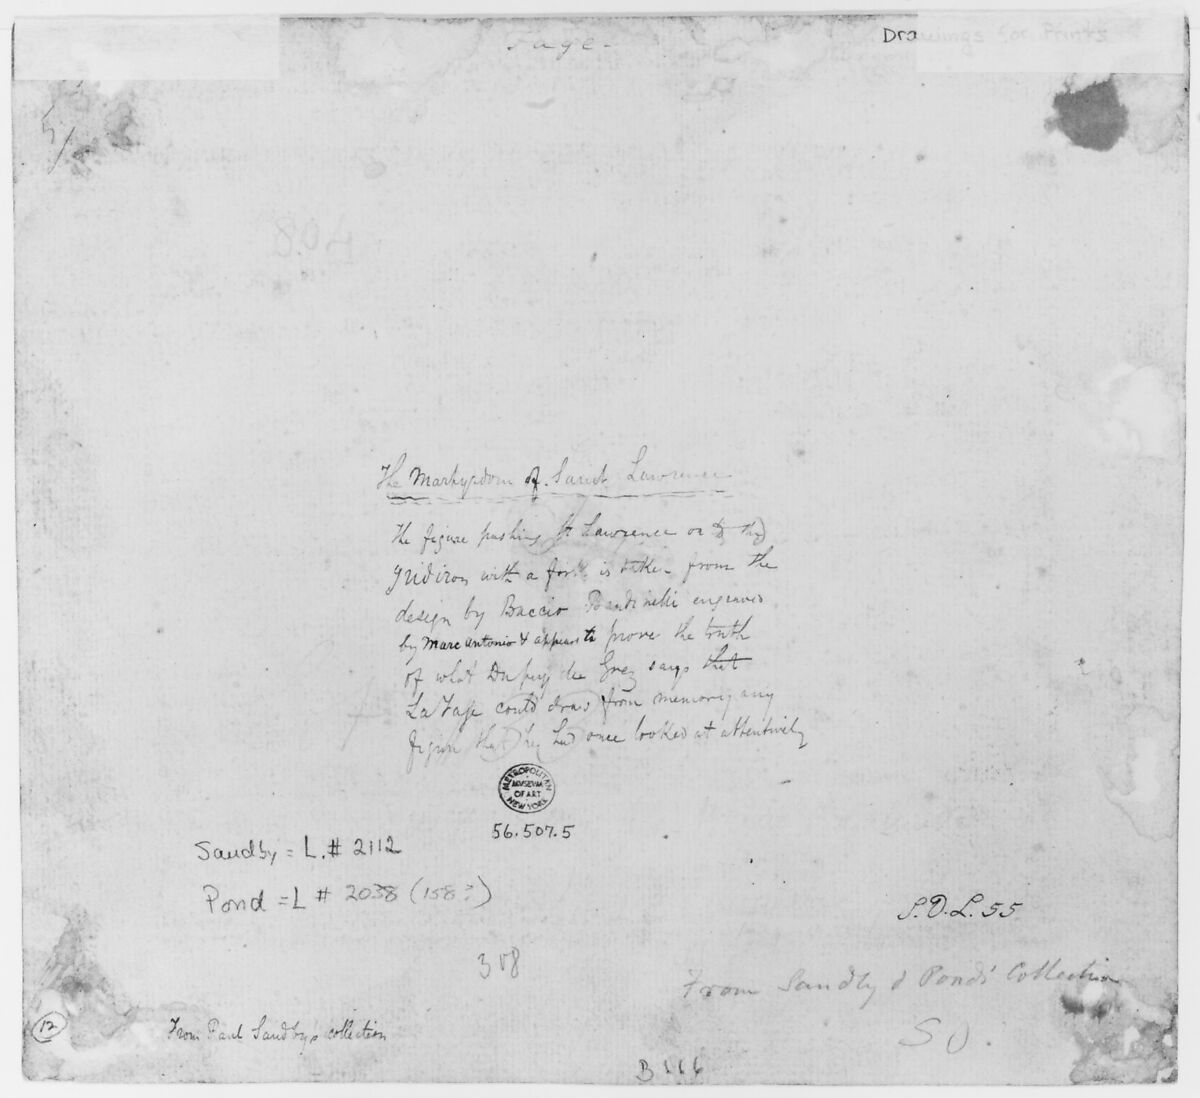 Fage-
Drawings for Prints
The Martyrdom of Saint Lawrence
The figure pushing St Lawrence on to the
gridiron with a fork is taken from the
design by Baccio Bandinelli engraved
by Marc Antonio & appears to prove the truth
of what Dupuy de Grez says that
La Fage could draw from memory any
figure that he had once looked at attentively
METROPOLITAN
MUSEUM
OF ART
NEW YORK
56.507.5
Sandby = L.# 2112
Pond = L # 2038 (158?)
S.D.L. 55
308
From Sandby & Pond's Collection
12
From Paul Sandby's collection